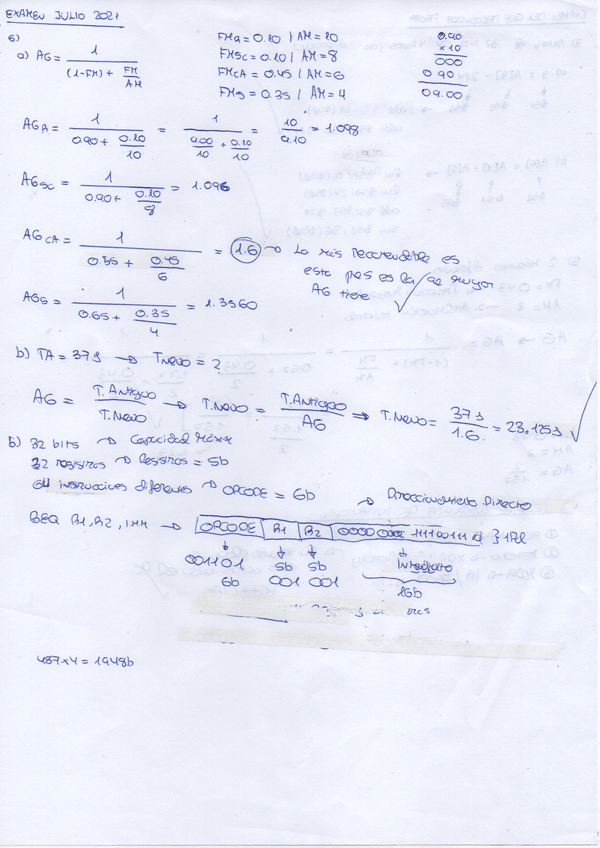 EXAMEN JULIO 2021
6)
a) AG = 1 / ((1-FM) + FM/AM)
FMA = 0.10 / AM = 10
FMSC = 0.10 / AM = 8
FMCA = 0.45 / AM = 6
FMS = 0.35 / AM = 4
0.90
x10
000
090
09.00
AGA = 1 / (0.90 + 0.10/10) = 1 / (9.00/10 + 0.10/10) = 10/9.10 = 1.098
AGSC = 1 / (0.90 + 0.10/8) = 1.096
AGCA = 1 / (0.55 + 0.45/6) = 1.6 → La más recomendable es
esta pues es la de mayor
AG tiene
AGS = 1 / (0.65 + 0.35/4) = 1.3560
b) TA = 37s → TNuevo = ?
AG = T.Antiguo / T.Nuevo → T.Nuevo = T.Antiguo / AG → T.Nuevo = 37s / 1.6 = 23.125s
5) 32 bits → Capacidad Máxima
32 registros → Registros = 5b
64 instrucciones diferentes → OPCODE = 6b
→ Direccionamiento Directo
BEQ R1, R2, IMM → OPCODE R1 R2
001101 5b 5b Inmediato
6b 001 001 16b
487x4 = 1948b